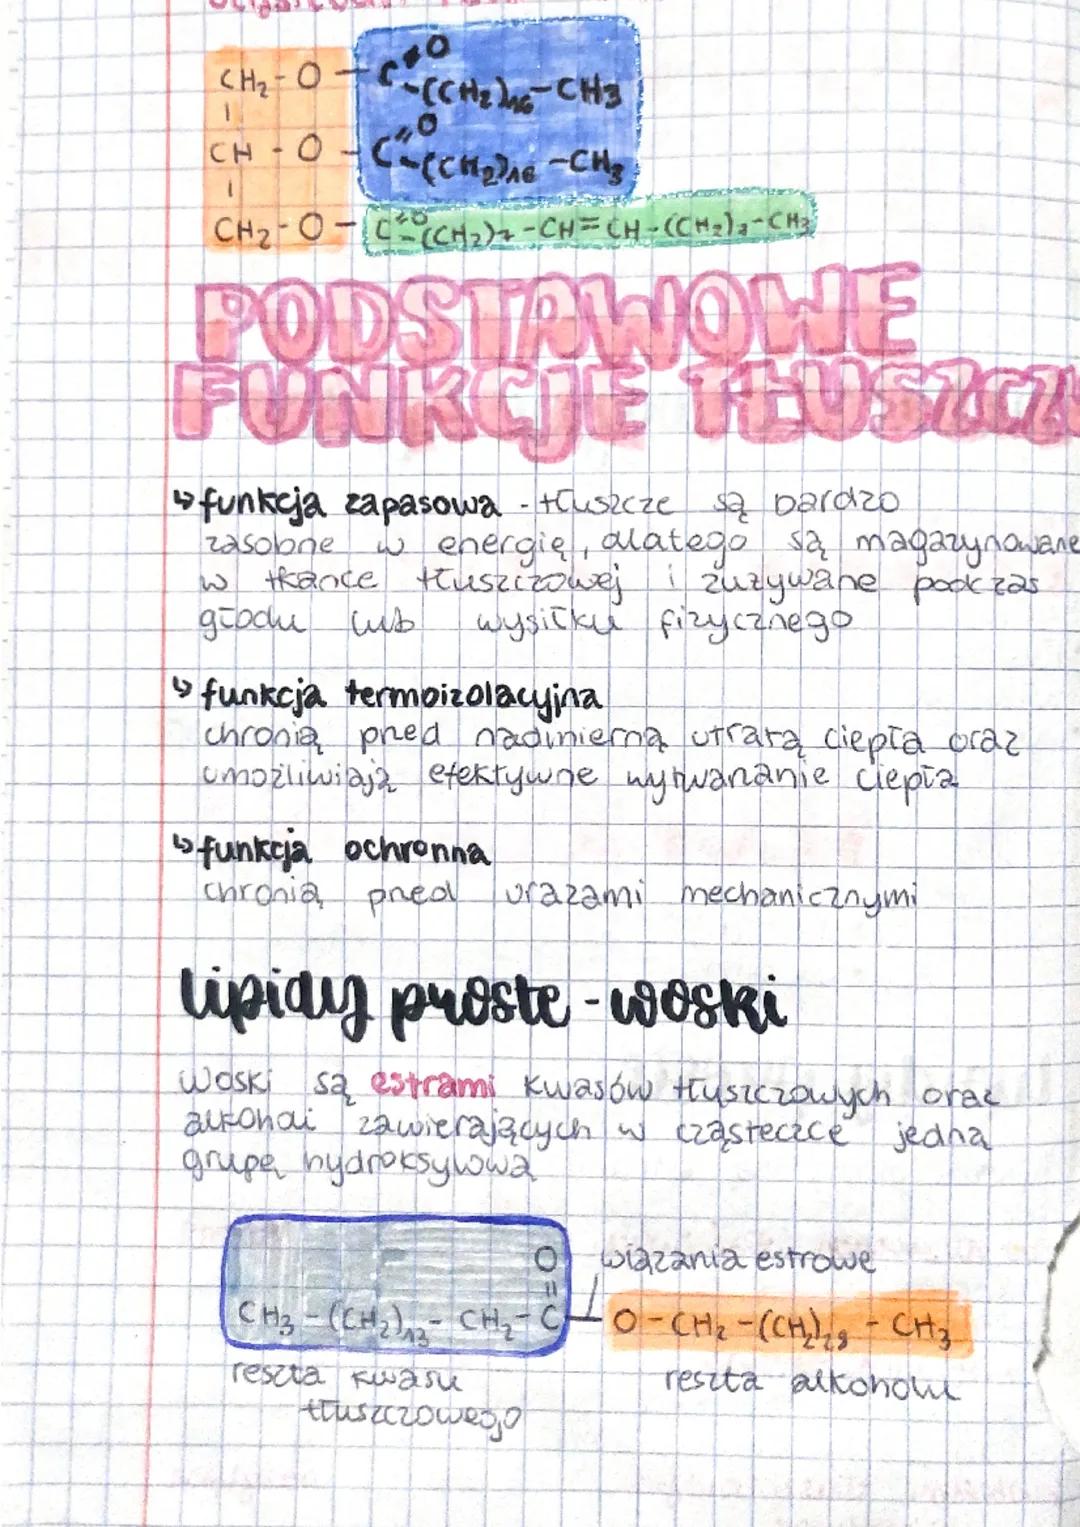 CH₂-O-C=O-((CH₂)₁₆-CH₃
CH-O-C=O-((CH₂)₁₆-CH₃
CH₂-O-C=O-((CH₂)₇-CH=CH-((CH₂)₇-CH₃
PODSTAWOWE
FUNKCJE TŁUSZCZ
↳ funkcja zapasowa - tłuszcze są bardzo
zasobne w energię, dlatego są magazynowane
w tkance tłuszczowej i zużywane podczas
głodu lub wysiłku fizycznego
↳ funkcja termoizolacyjna
chronią przed nadmierną utratą ciepła oraz
umożliwiają efektywne wytwarzanie ciepła
↳ funkcja ochronna
chronią przed urazami mechanicznymi
lipidy proste - woski
woski są estrami kwasów tłuszczowych oraz
alkoholi zawierających w cząsteczce jedną
grupę hydroksylową
O wiązania estrowe
CH₃-(CH₂)₁₃-CH₂-C-O-CH₂-(CH₂)₂₈-CH₃
reszta kwasu reszta alkoholu
tłuszczowego